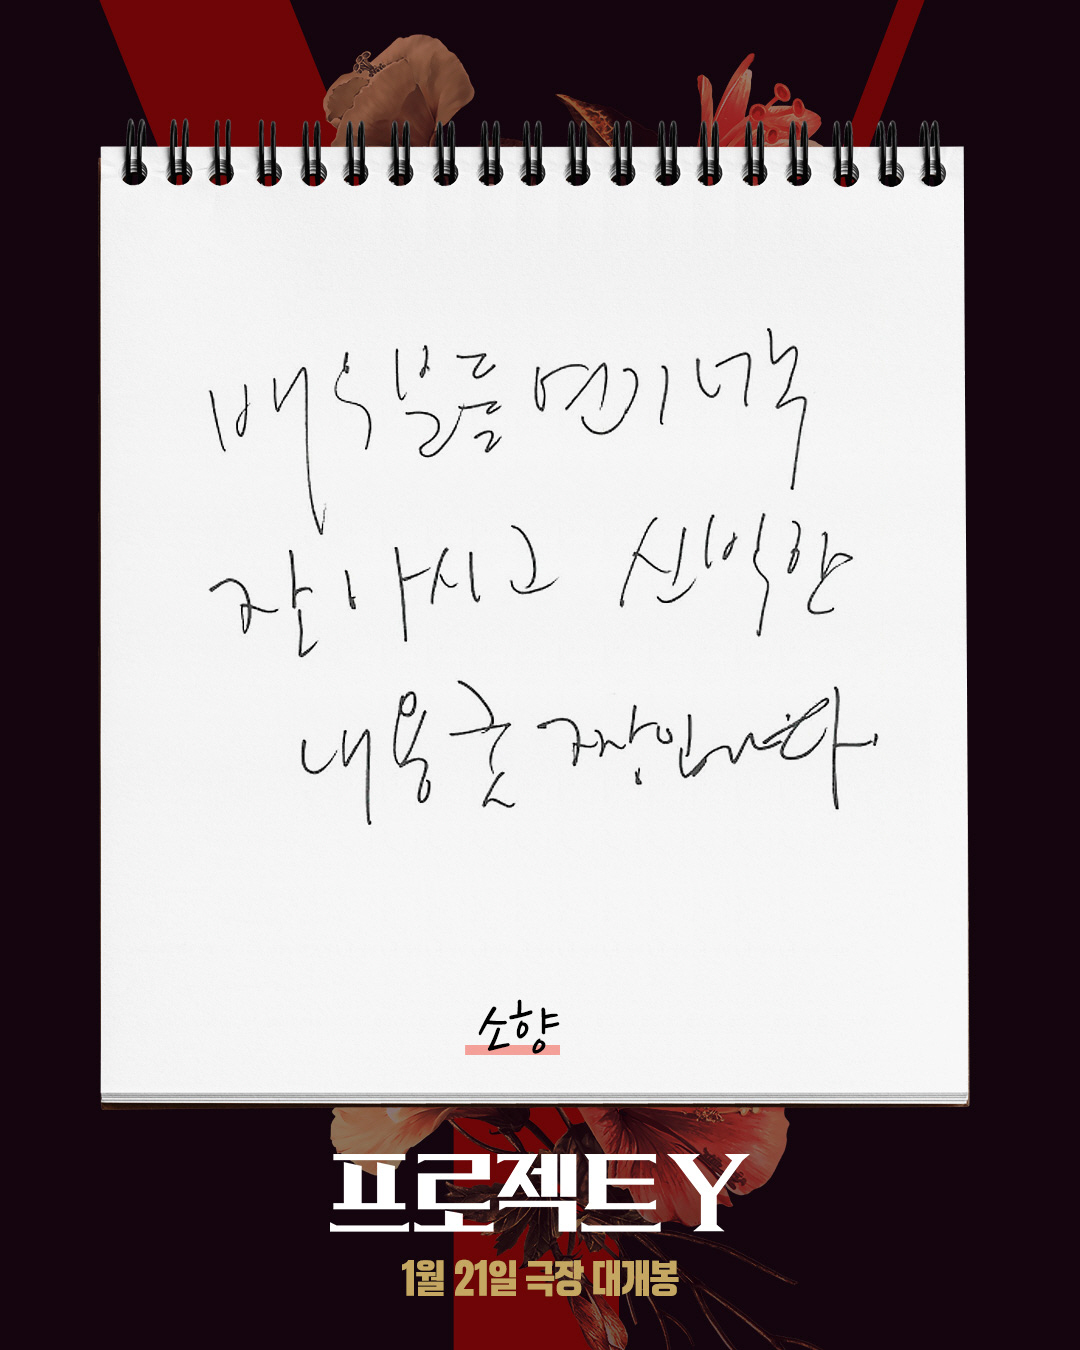 배우분들 연기 너무
잘하시고 신박한
내용굿 짱입니다
소향
프로젝트 Y
1월 21일 극장 대개봉